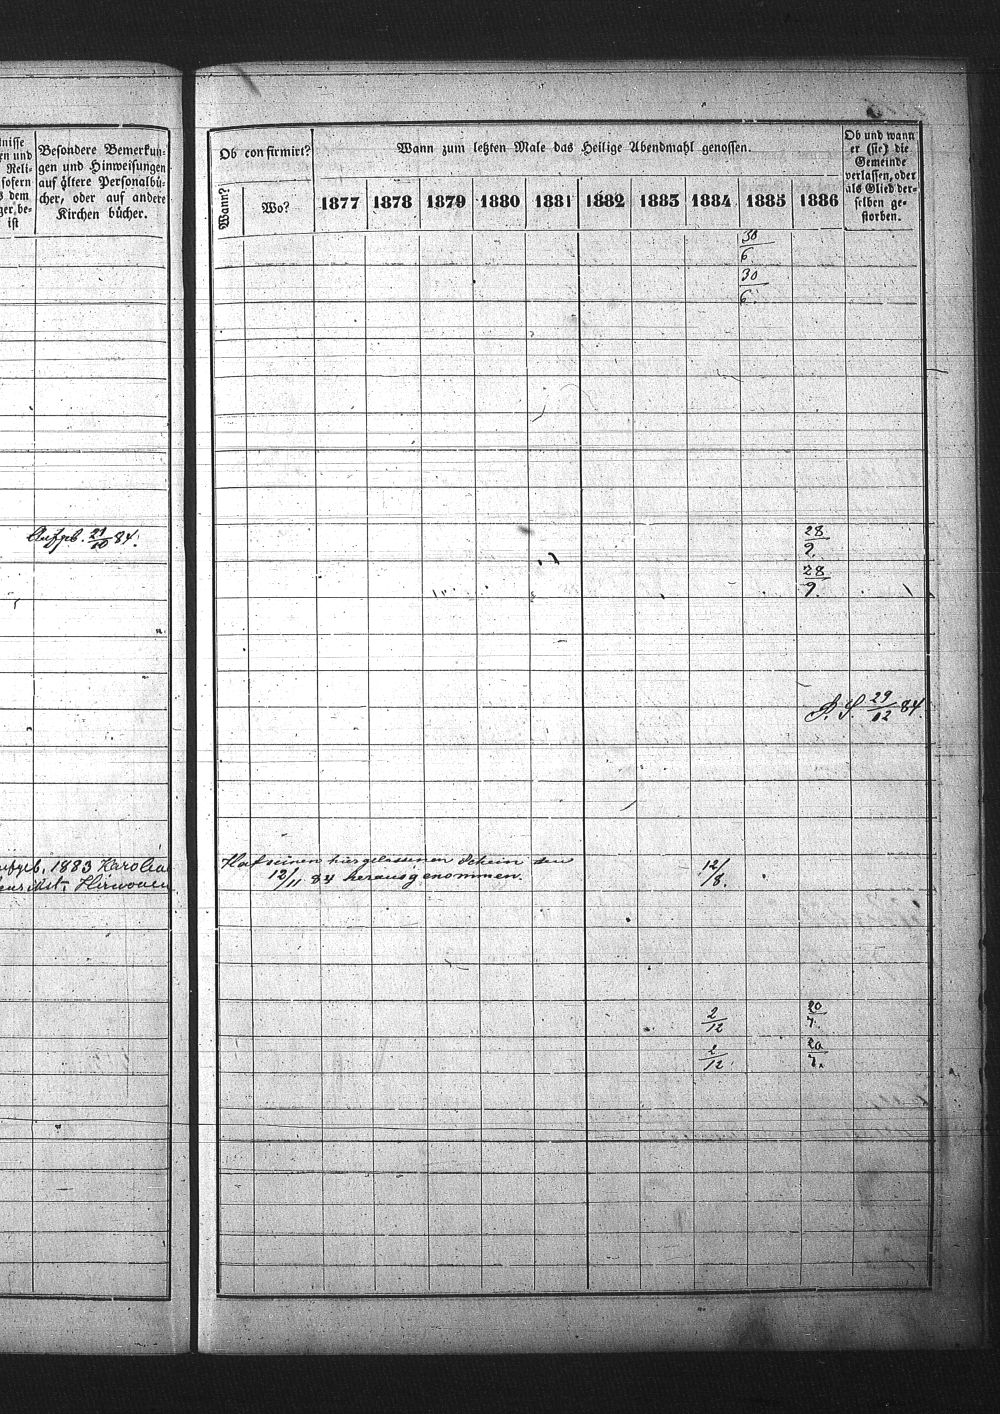 tnisse
en und
Reli-
sofern
s dem
ger, be-
ist
Besondere Bemerkun-
gen und Hinweisungen
auf ältere Personalbü-
cher, oder auf andere
Kirchen bücher.
Ob confirmirt?
Wann?
Wo?
Wann zum letzten Male das Heilige Abendmahl genossen.
1877 1878 1879 1880 1881 1882 1883 1884 1885 1886
Ob und wann
er (sie) die
Gemeinde
verlassen, oder
als Glied der-
selben ge-
storben.
30/6
30/6.
Aufgeb. 21/10 84.
28/9.
28/9.
29/12 84.
1883
Hat seinen hiergelassenen Schein den
12/11 84 herausgenommen.
12/8.
2/12
20/7.
2/12.
20/7.